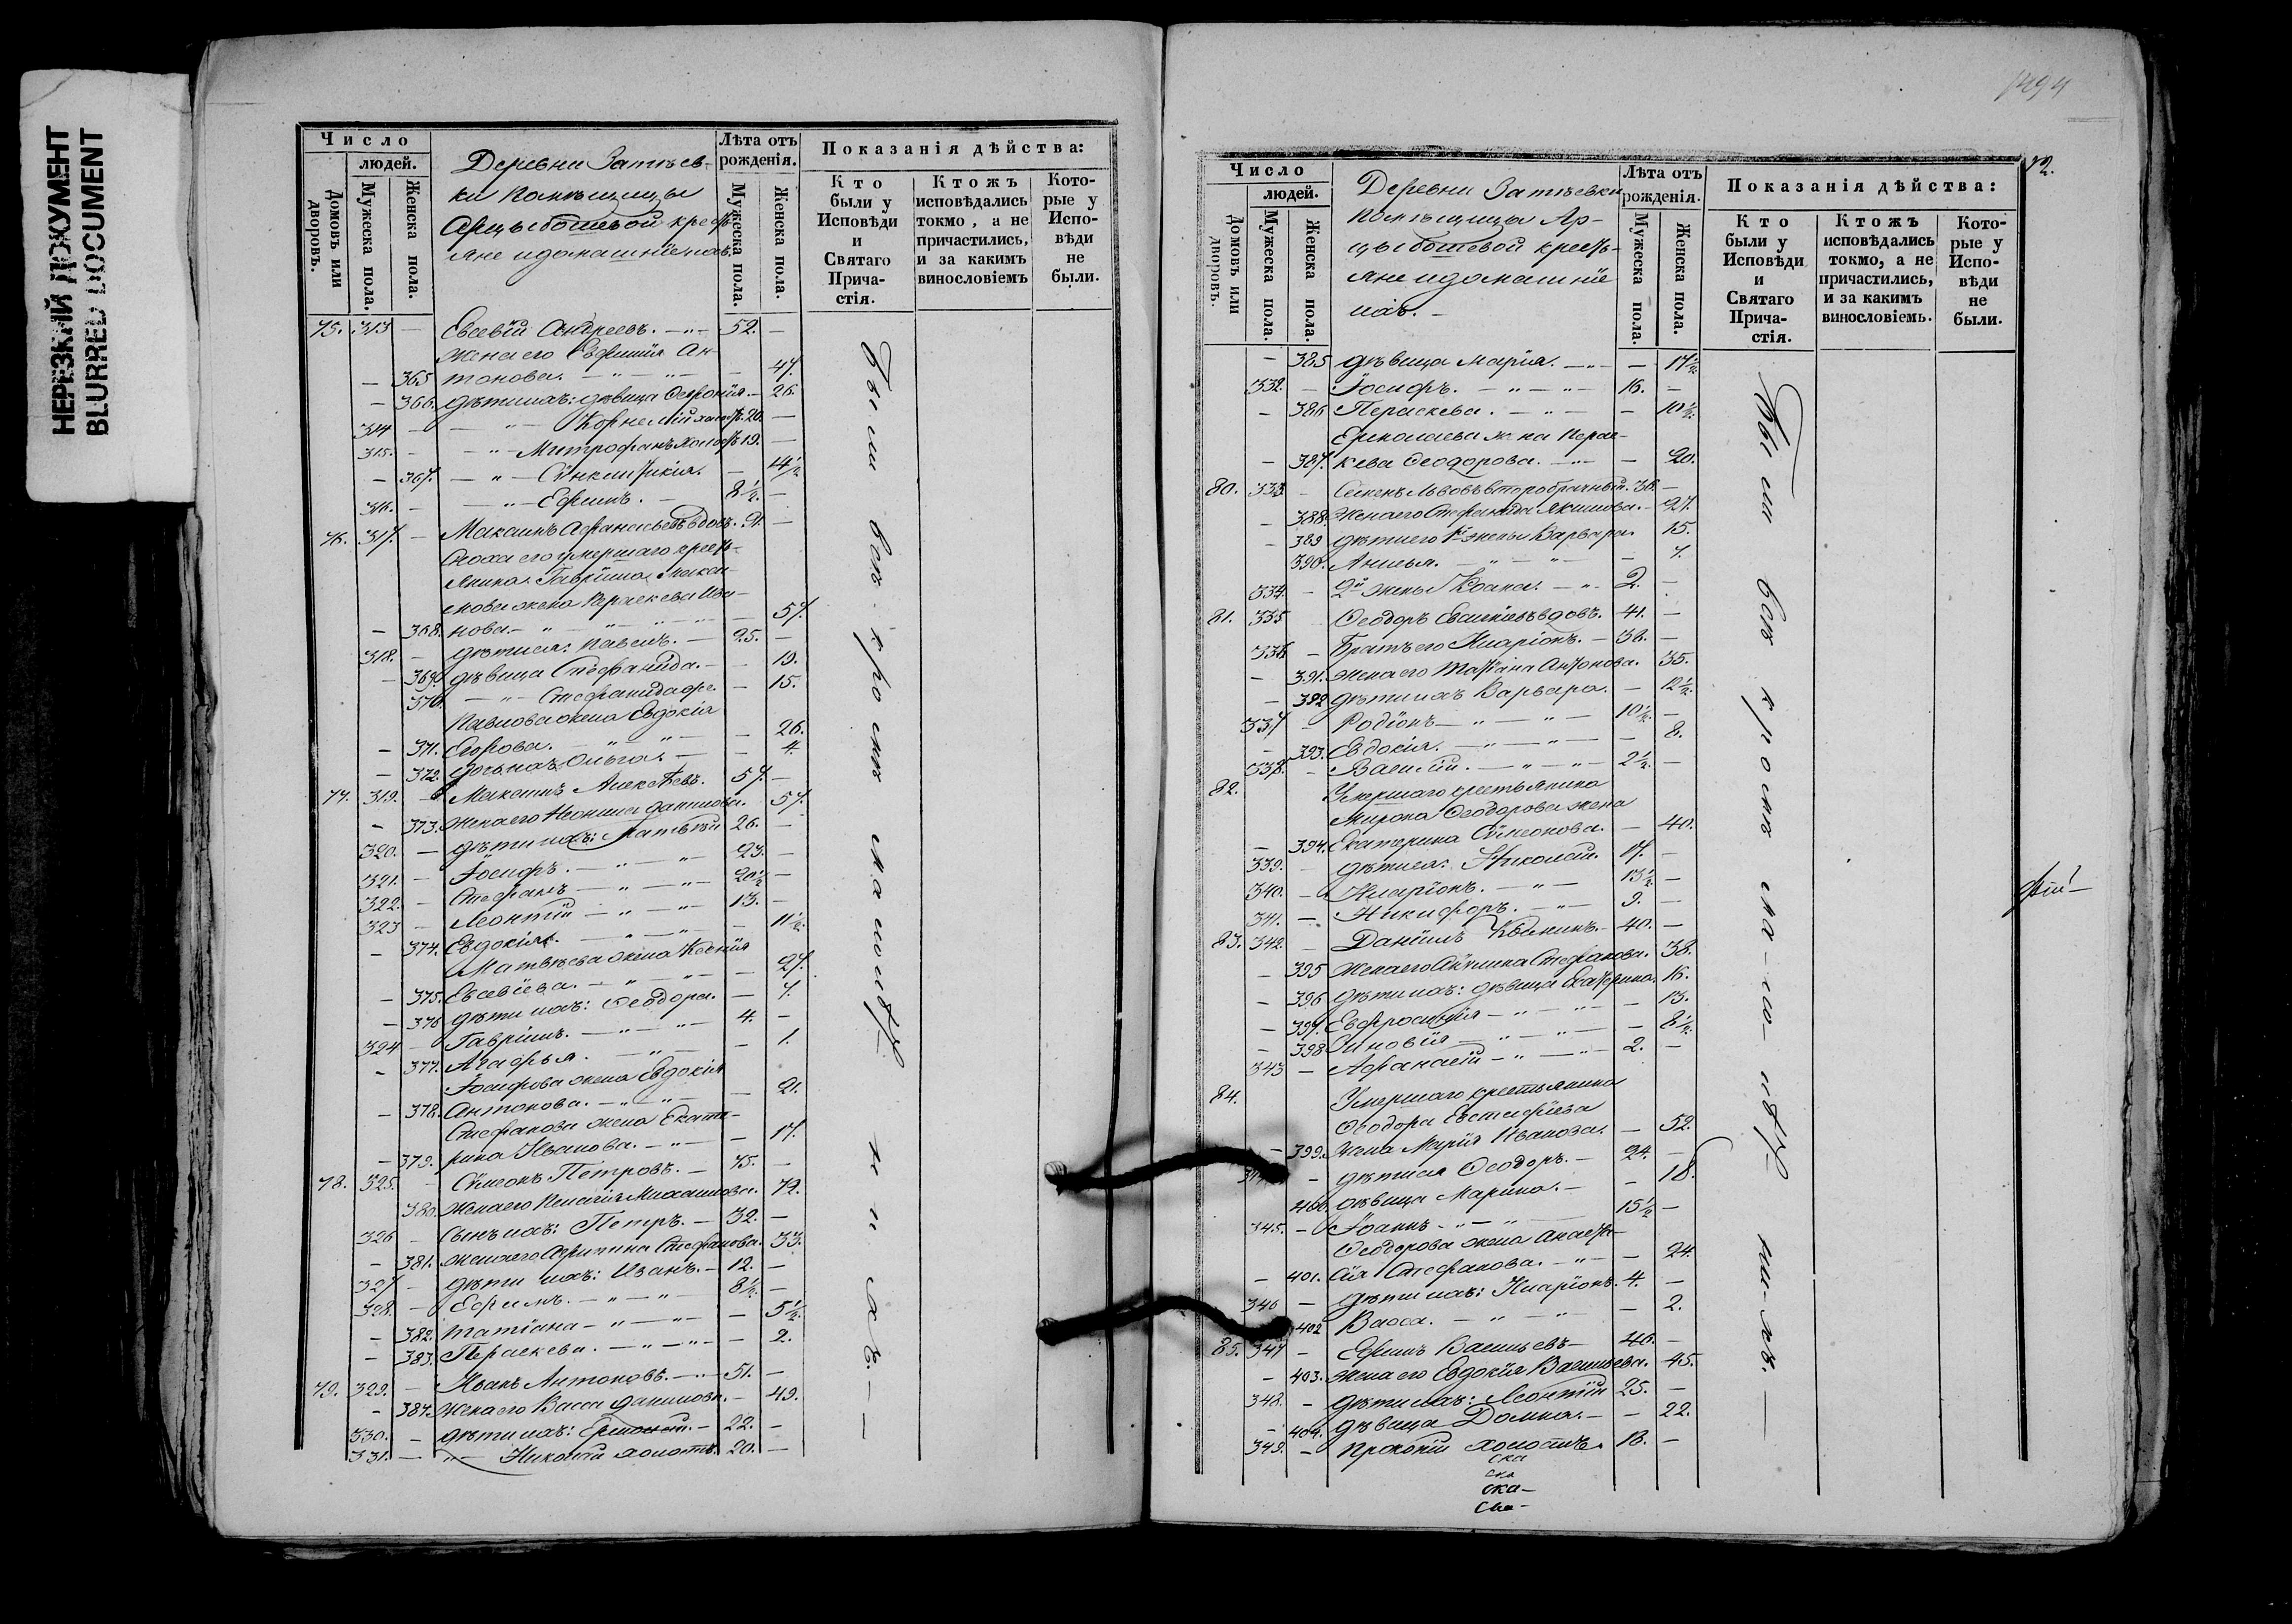 НЕРЕЗКИЙ ДОКУМЕНТ
BLURRED DOCUMENT
Число
людей.
Домовъ или дворовъ.
Мужеска пола.
Женска пола.
Деревни Затѣев-
ки помѣщицы
Арцыбошевой кресть-
яне и домашніе ихъ.
Лѣта отъ рожденія.
Мужеска пола.
Женска пола.
Показанія дѣйства:
Кто были у Исповѣди и Святаго Прича-стія.
Ктожъ исповѣдались токмо, а не причастились, и за какимъ винословіемъ
Кото-рые у Испо-вѣди не были.
75. 313 — Евсевій Андреевъ. — 52. —
жена его Евфимія Ан-
— 365 тонова. — 47.
— 366. дѣти ихъ: дѣвица Февронія. — 26.
314 — Корнелій холостъ. 20. —
315. — Митрофанъ холостъ 19. —
— 367. — Сѵнклитикія. — 14½
316. — Ефимъ. — 8½. —
76. 317. — Максимъ Афанасьевъ вдовъ.
Сноха его умершаго кресть-
янина Гавріила Макси-
мова жена Параскева Ива-
— 368. нова. — 57.
318. — дѣти ея: Павелъ. — 25. —
— 369. дѣвица Стефанида. — 19.
370. — Стефанида же. — 15.
Павлова жена Евдокія
— 371. Егорова. — 26.
— 372. дочь ихъ Ольга. — 4.
77. 319. — Максимъ Алексѣевъ. 57. —
— 373. жена его Неонила Данилова. 57.
320. — дѣти ихъ: Матвѣй 26. —
321. — Іосифъ. — 23. —
322. — Стефанъ — 20½ —
323 — Леонтій — 13. —
— 374. Евдокія. — 11½.
Матвѣева жена Ксенія
— 375. Евсевіева. — 27.
— 376 дѣти ихъ: Феодора. — 7.
324 — Гавріилъ. — 4. —
— 377. Агафья. — 1.
Іосифова жена Евдокія
— 378. Антонова. — 21.
Стефанова жена Екате-
— 379. рина Иванова. — 17.
78. 325. — Сѵмеонъ Петровъ. — 75. —
380. жена его Пелагія Михаилова. 72.
326 — сынъ ихъ: Петръ. — 32. —
— 381. жена его Афимина Стефанова. 33.
327 — дѣти ихъ: Иванъ. — 12. —
328. — Ефимъ. — 8½. —
— 382. Татіана — 5½.
— 383. Параскева. — 2.
79. 329. — Иванъ Антоновъ. — 51. —
— 384. жена его Васса Данилова. — 49.
330. — дѣти ихъ: Ермолай. — 22. —
331. — Николай холостъ. 20. —
Были всѣ кромѣ малолѣт- нихъ. —
72.
Число
людей.
Домовъ или дворовъ.
Мужеска пола.
Женска пола.
Деревни Затѣевки
помѣщицы Ар-
цыбошевой кресть-
яне и домашніе
ихъ. —
Лѣта отъ рожденія.
Мужеска пола.
Женска пола.
Показанія дѣйства:
Кто были у Исповѣди и Святаго Прича-стія.
Ктожъ исповѣдались токмо, а не причастились, и за какимъ винословіемъ.
Кото-рые у Испо-вѣди не были.
— 385 дѣвица Марія. — 17½.
332. — Іосифъ. — 16. —
— 386 Параскева. — 10½.
Ермолаева жена Парас-
— 387. кева Феодорова. — 20.
80. 333. — Семенъ Львовъ второбрачный. 36. —
— 388. жена его Стефанида Якимова. — 27.
— 389 дѣти его 1й жены Варвара 15.
390. Анисья. — 7.
334 — 2й жены Іоаннъ. — 2. —
81. 335 Феодоръ Евсигніевъ вдовъ. 41. —
336 — Братъ его Иларіонъ. — 36. —
— 391. жена его Татіана Антонова. 35.
— 392 дѣти ихъ Варвара. — 12½.
337 — Родіонъ — 10½. —
— 393. Евдокія. — 8.
338. — Василій. — 2½. —
82. Умершаго крестьянина
Мирона Феодорова жена
— 394. Екатерина Сѵмеонова. — 40.
339. дѣти ея: Николай. 17. —
340. — Иларіонъ. — 13½ —
341. — Никифоръ. — 9. —
83. 342. — Даніилъ — 40. —
— 395 жена его Акилина Стефанова. 38.
— 396 дѣти ихъ: дѣвица Екатерина. 16.
— 397. Евфросинія — 13.
— 398 Зиновія — 8½.
343 — Афанасій — 2. —
84. Умершаго крестьянина
Феодора Евстафіева
— 399. жена Марія Иванова. — 52.
344 — дѣти ея Феодоръ. — 24. —
400. дѣвица Марина. — 18.
345. — Іоаннъ — 15½ —
Феодорова жена Анаста-
— 401. сія Стефанова. — 24.
346 — дѣти ихъ: Иларіонъ. 4. —
402 Васса. — 2.
85. 347 — Ефимъ Васильевъ — 46. —
— 403. жена его Евдокія Васильева. 45.
348. — дѣти ихъ: Леонтій 25. —
— 404. дѣвица Домна. — 22.
349. — Прокопій холостъ. 18. —
Были всѣ кромѣ ма-ло-лѣт- ни-хъ. —
ска
ска
ска-